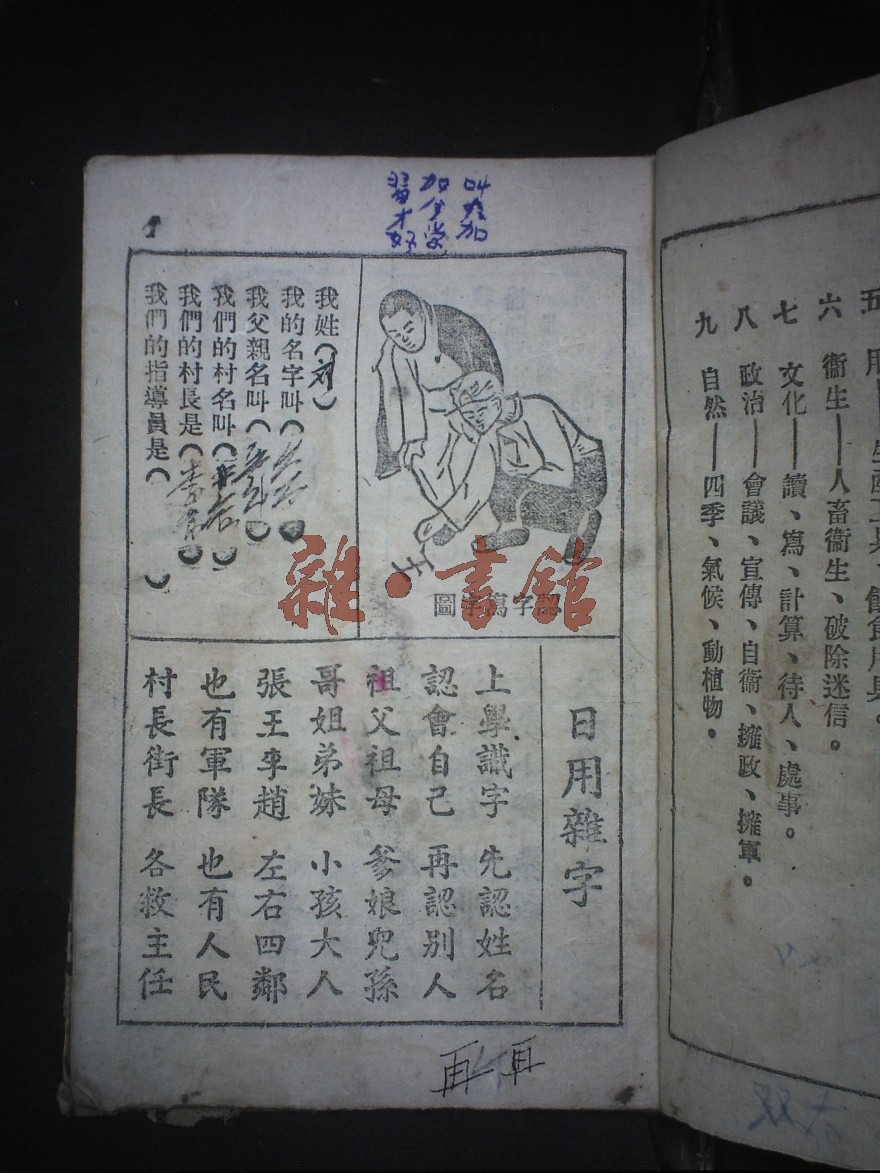 五 用
六 衞生——人畜衞生、破除迷信。
七 文化——讀、寫、計算、待人、處事。
八 政治——會議、宣傳、自衞、擁政、擁軍。
九 自然——四季、氣候、動植物。
加
習才好
認字寫字圖
我姓（刘）
我的名字叫（
我父親名叫（
我們的村名叫（
我們的村長是（李
我們的指導員是（ ）
日用雜字
上學識字 先認姓名
認會自己 再認別人
祖父祖母 爹娘兒孫
哥姐弟妹 小孩大人
張王李趙 左右四鄰
也有軍隊 也有人民
村長街長 各救主任
再 再
雜·書館